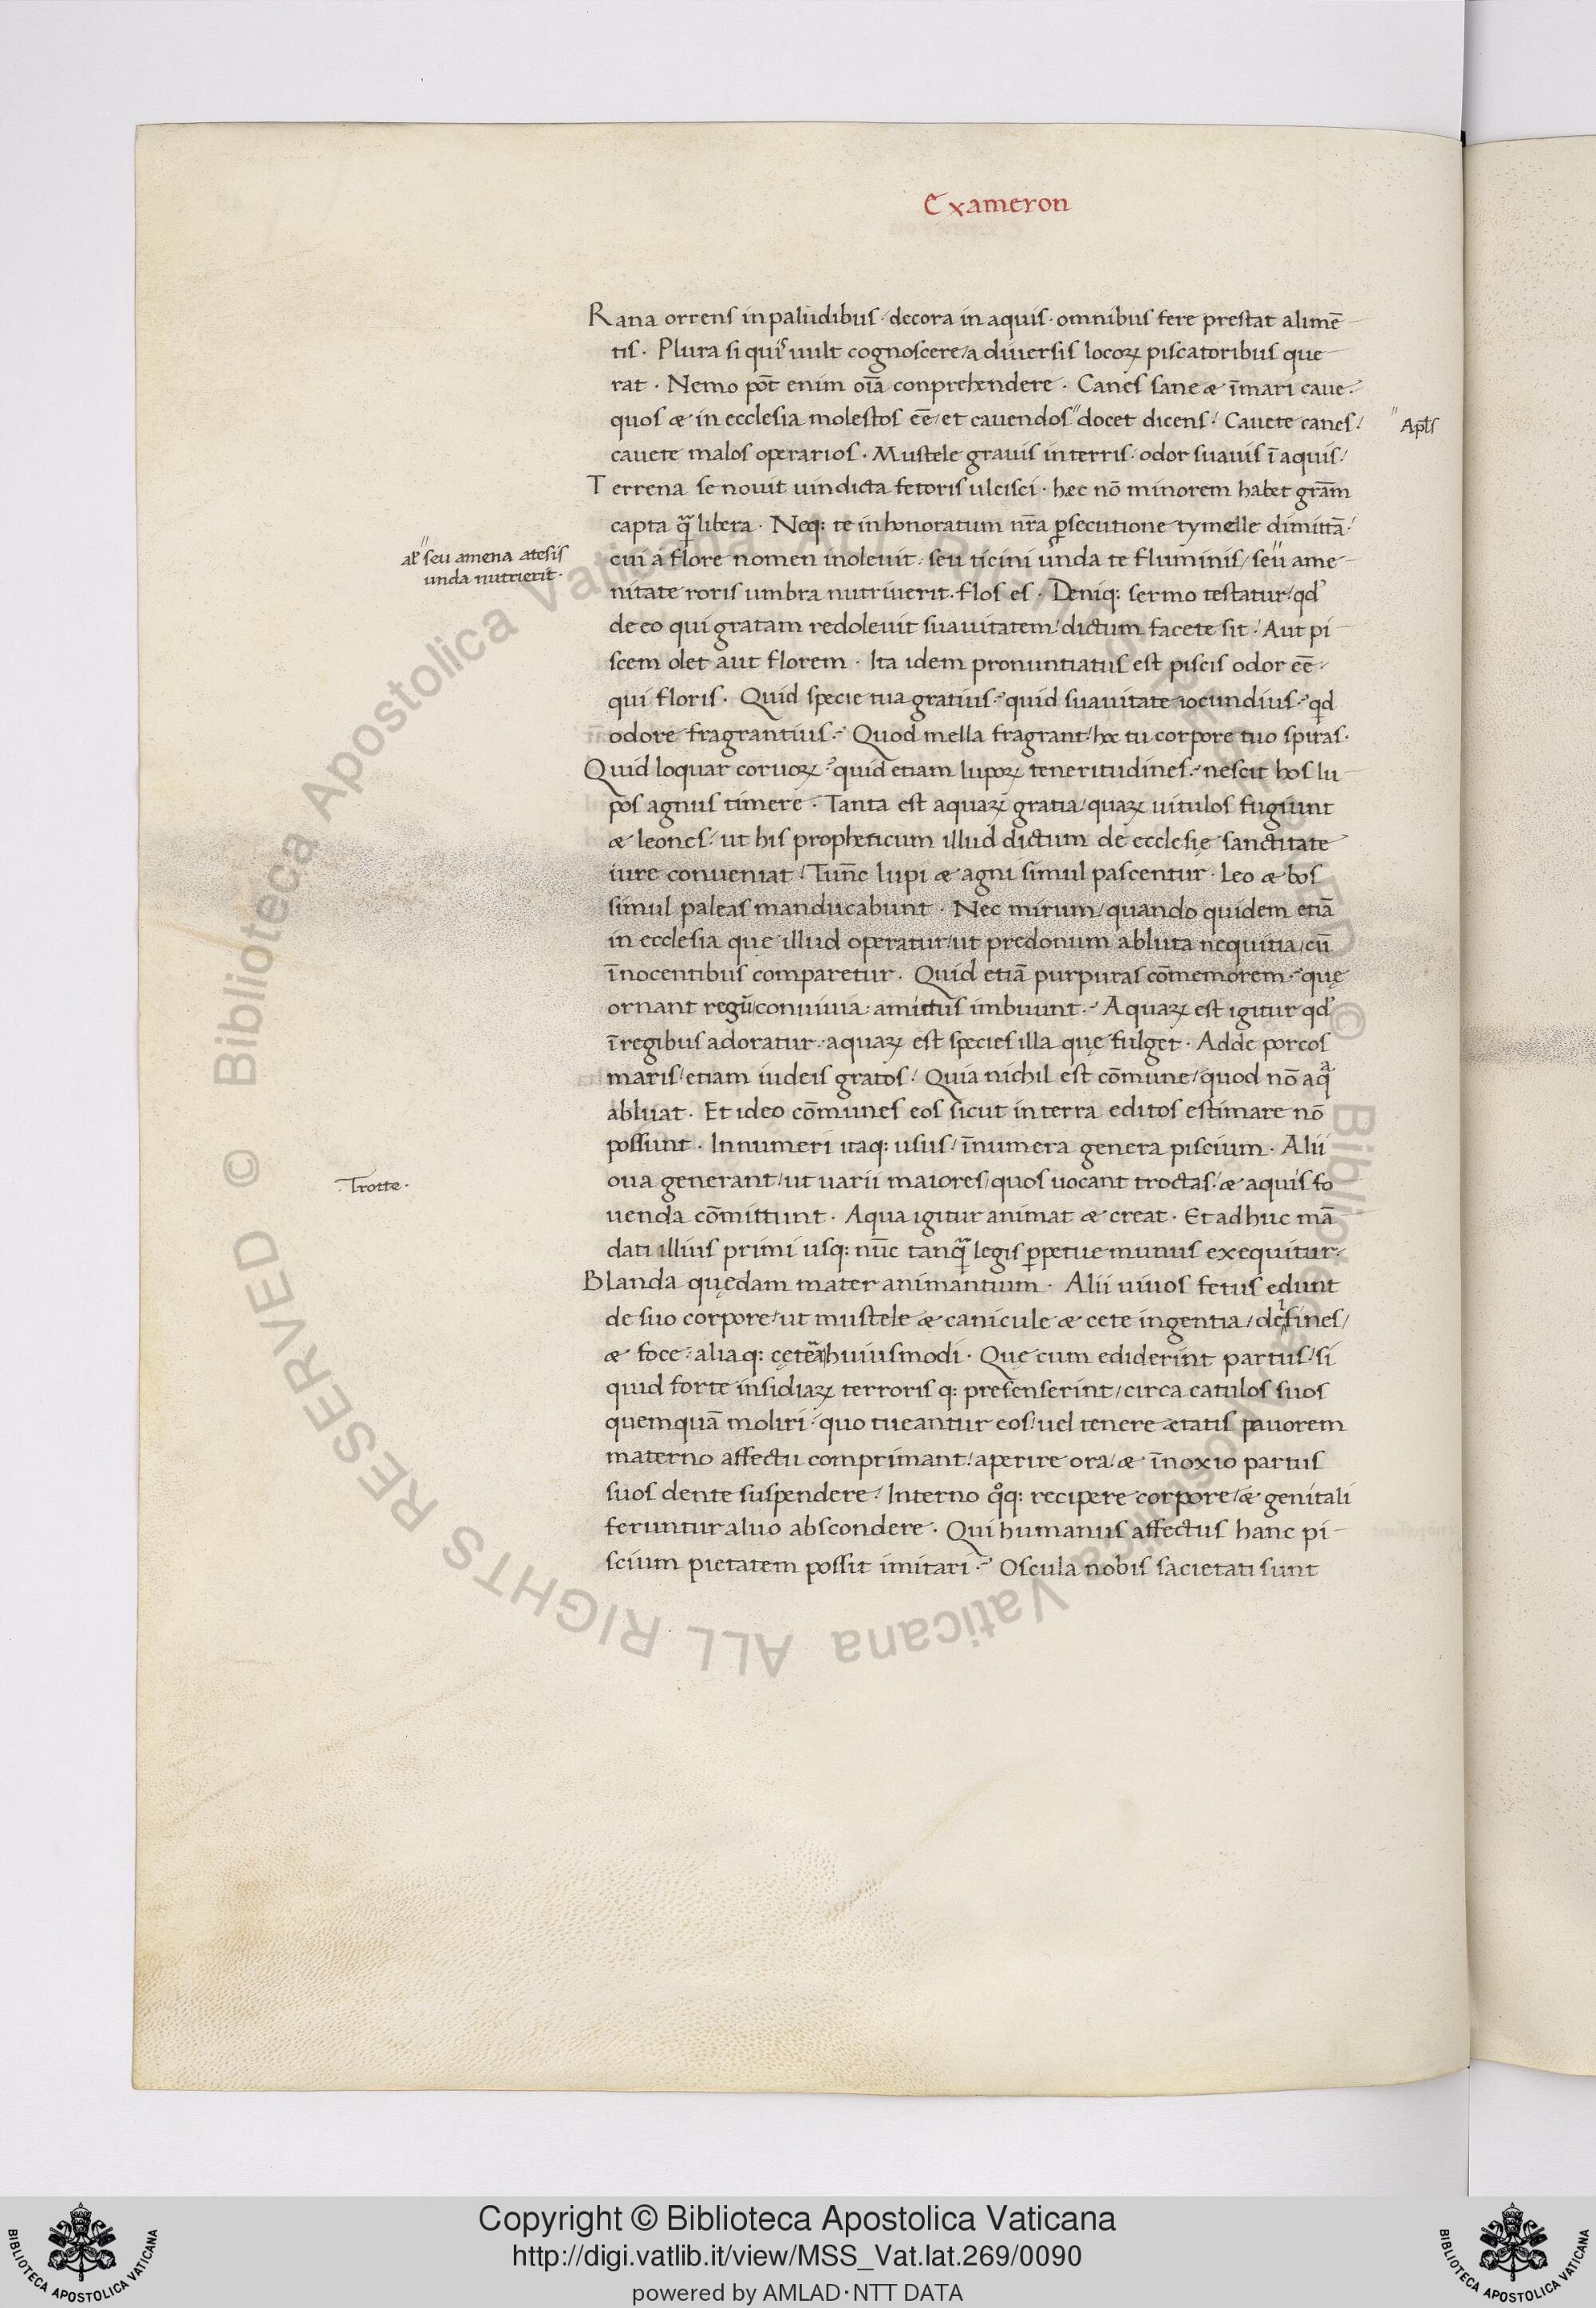 Exameron
Rana orrens in paludibus / decora in aquis · omnibus fere prestat alimē
tis · Plura si quis uult cognoscere / a diuersis locoꝝ piscatoribus que
rat · Nemo pōt enim oīa conprehendere · Canes sane æ ī mari caue /
quos æ in ecclesia molestos eē / et cauendos " docet dicens / Cauete canes /
" Apłs
cauete malos operarios · Mustele grauis in terris / odor suauis ī aquis /
Terrena se nouit uindicta fetoris ulcisci · hæc nō minorem habet grām
capta q̄ libera · Neq: te inhonoratum nr̄a ꝑsecutione tymelle dimittā /
cui a flore nomen inoleuit · seu ticini unda te fluminis / seu" ame
al" seu amena atesis
unda nutrierit ·
nitate roris umbra nutriuerit · flos es · Deniq: sermo testatur / qd'
de eo qui gratam redoleuit suauitatem / dictum facete sit / Aut pi
scem olet aut florem · Ita idem pronuntiatus est piscis odor eē /
qui floris · Quid specie tua gratius ? quid suauitate iocundius ? qd
odore fragrantius ? Quod mella fragrant / hoc tu corpore tuo spiras ·
Quid loquar coruoꝝ ? quid etiam lupoꝝ teneritudines ? nescit hos lu
pos agnus timere · Tanta est aquaꝝ gratia / quaꝝ uitulos fugiunt
æ leones / ut his propheticum illud dictum de ecclesię sanctitate
iure conueniat / Tunc lupi æ agni simul pascentur · Leo æ bos
simul paleas manducabunt · Nec mirum / quando quidem etiā
in ecclesia que illud operatur / ut predonum abluta nequitia / cū
īnocentibus comparetur · Quid etiā purpuras cōmemorem ? quę
ornant regū conuiuia · amictus imbuunt ? Aquaꝝ est igitur qd'
ī regibus adoratur · aquaꝝ est species illa quę fulget · Adde porcos
maris / etiam iudeis gratos / Quia nichil est cōmune / quod nō aq̄
abluat · Et ideo cōmunes eos sicut in terra editos estimare nō
possunt · Innumeri itaq: usus / īnumera genera piscium · Alii
oua generant / ut uarii maiores / quos uocant troctas / æ aquis fo
· Trotte ·
uenda cōmittunt · Aqua igitur animat æ creat · Et adhuc mā
dati illius primi usq: nūc tanq̄ legis ꝑpetue munus exequitur ·
Blanda quędam mater animantium · Alii uiuos fetus edunt
de suo corpore / ut mustele æ canicule æ cete ingentia / delfines /
æ foce / aliaq: cętera huiusmodi · Quę cum ediderint partus / si
quid forte insidiaꝝ terroris q: presenserint / circa catulos suos
quemquā moliri / quo tueantur eos / uel tenere ætatis pauorem
materno affectu comprimant / aperire ora / æ īnoxio partus
suos dente suspendere / Interno qͦq: recipere corpore / æ genitali
feruntur aluo abscondere · Qui humanus affectus hanc pi
scium pietatem possit imitari ? Oscula nobis sacietati sunt
Copyright © Biblioteca Apostolica Vaticana
http://digi.vatlib.it/view/MSS_Vat.lat.269/0090
powered by AMLAD · NTT DATA
BIBLIOTECA APOSTOLICA VATICANA
BIBLIOTECA APOSTOLICA VATICANA
© Biblioteca Apostolica Vaticana ALL RIGHTS RESERVED © Biblioteca Apostolica Vaticana ALL RIGHTS RESERVED